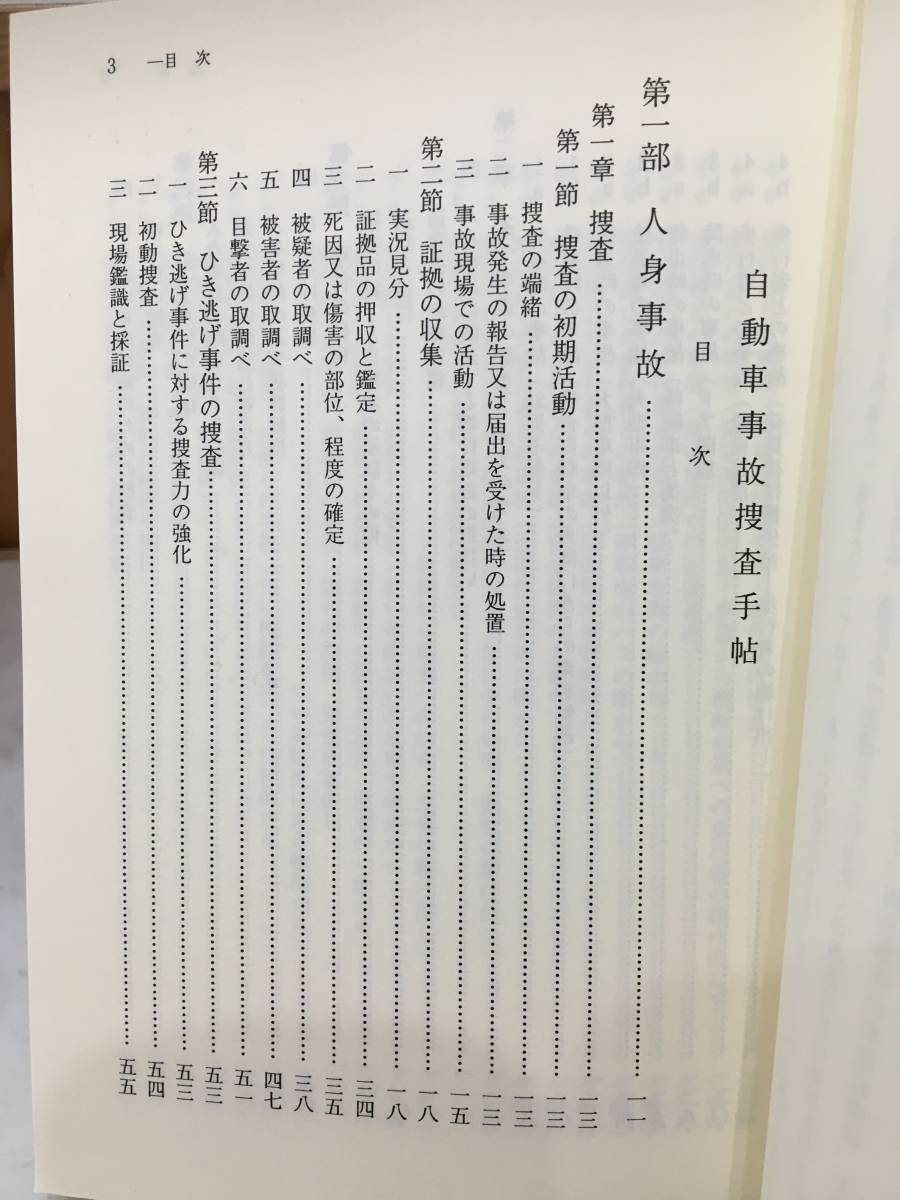 3　一目　次
自動車事故捜査手帖
目　次
第一部　人身事故……一一
第一章　捜査……一三
第一節　捜査の初期活動……一三
一　捜査の端緒……一三
二　事故発生の報告又は届出を受けた時の処置……一三
三　事故現場での活動……一五
第二節　証拠の収集……一八
一　実況見分……一八
二　証拠品の押収と鑑定……三四
三　死因又は傷害の部位、程度の確定……三五
四　被疑者の取調べ……三八
五　被害者の取調べ……四七
六　目撃者の取調べ……五一
第三節　ひき逃げ事件の捜査……五三
一　ひき逃げ事件に対する捜査力の強化……五三
二　初動捜査……五四
三　現場鑑識と採証……五五